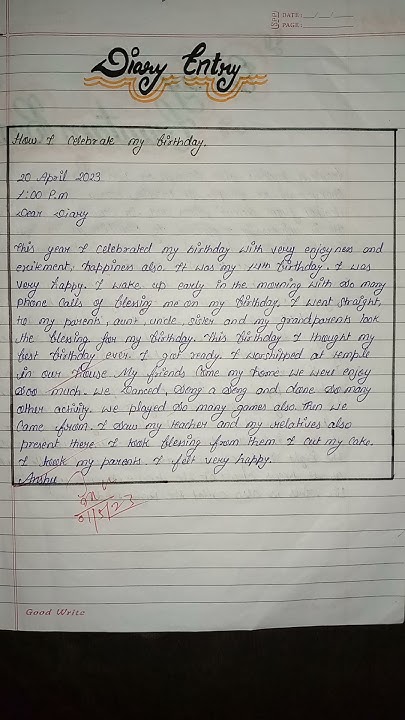 DATE: __/__/__
PAGE:
Diary Entry
How I celebrate my birthday.
20 April 2023
1:00 P.m
Dear Diary
This year I celebrated my birthday with very enjoyness and
excitement, happiness also. It was my 14th birthday. I was
very happy. I wake up early in the morning with so many
phone calls of blessing me on my birthday. I went straight,
to my parents, aunt, uncle, sister and my grandparents took
the blessing for my birthday. This birthday I thought my
best birthday ever. I got ready. I worshipped at temple
in our house. My friends come my home we were enjoy
soo much. we danced, song a song and done so many
other activity. we played so many games also. Then we
came from. I saw my teacher and my relatives also
present there. I took blessing from them I cut my cake.
I took my parents. I felt very happy.
Anshu
01/5/23
Good Write